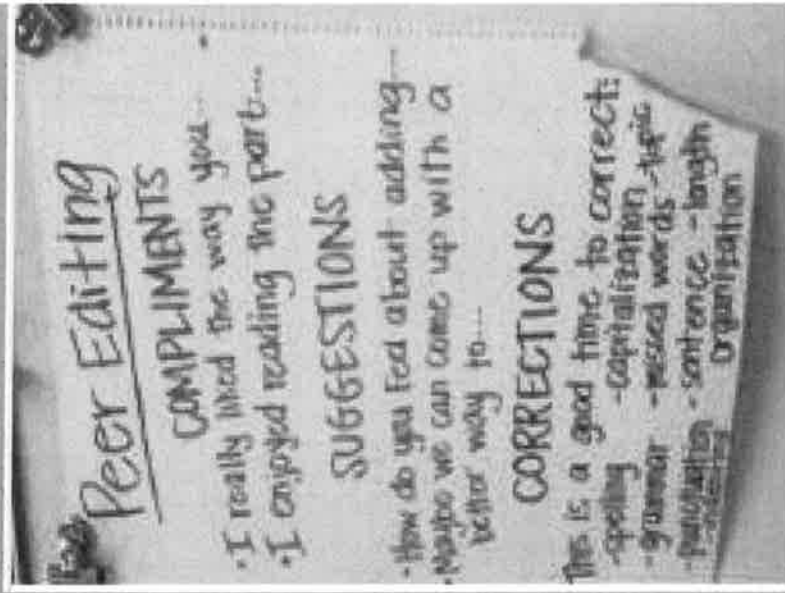 Peer Editing
COMPLIMENTS
• I really liked the way you...
• I enjoyed reading the part...
SUGGESTIONS
• How do you feel about adding...
• Maybe we can come up with a
better way to...
CORRECTIONS
This is a good time to correct:
-spelling -capitalization
-grammar -missed words -topic
-punctuation -sentence -length
organization